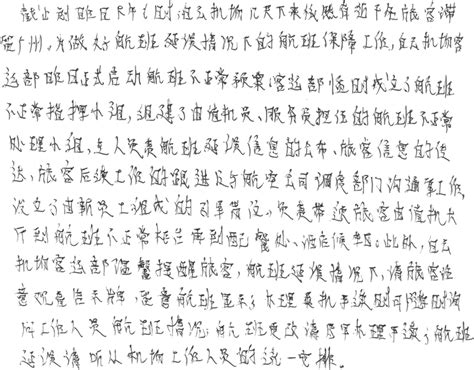 截止到昨日下午6时,白云机场几天下来仍然有近千名旅客滞
留广州。为做好航班延误情况下的航班保障工作,白云机场客
运部昨日正式启动航班不正常预案,客运部临时成立了航班
不正常指挥小组,组建了由值机员、服务员担任的航班不正常
处理小组,专人负责航班延误信息的公布、旅客信息的传
达、旅客后续工作的跟进及与航空公司调度部门沟通等工作,
设立了由新员工组成的引导岗位,负责带送旅客由值机大
厅到航班不正常柜台再到西餐处、酒店候车区。此外,白云
机场客运部温馨提醒旅客,航班延误情况下,请旅客注
意现场告示牌,留意航班显示;办理乘机手续时可随时询
问工作人员航班情况;航班更改请尽早办理手续;航班
延误请听从机场工作人员的统一安排。